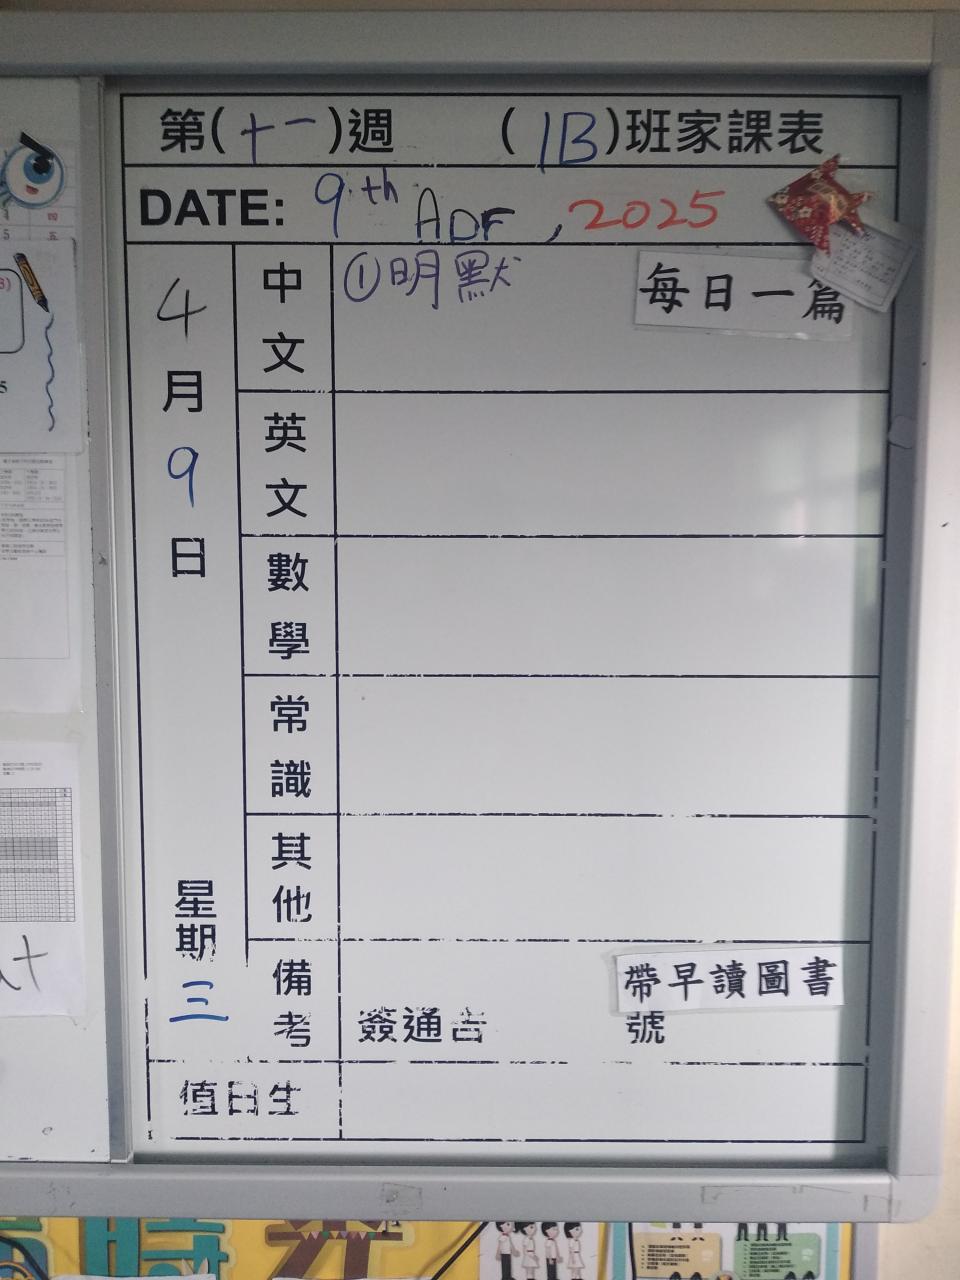 第(十一)週 (1B)班家課表
DATE: 9th ADF, 2025
4月9日
星期三
中文 ①明默 每日一篇
英文
數學
常識
其他
備考 簽通告 號 帶早讀圖書
值日生